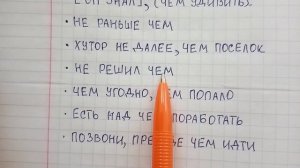 ЕСЛИ ЗНАЛ), (ЧЕМ УДИВИТЬ).
• НЕ РАНЬШЕ ЧЕМ
• ХУТОР НЕ ДАЛЕЕ, ЧЕМ ПОСЁЛОК
• НЕ РЕШИЛ ЧЕМ
• ЧЕМ УГОДНО, ЧЕМ ПОПАЛО
• ЕСТЬ НАД ЧЕМ ПОРАБОТАТЬ
• ПОЗВОНИ, ЧЕМ ИДТИ